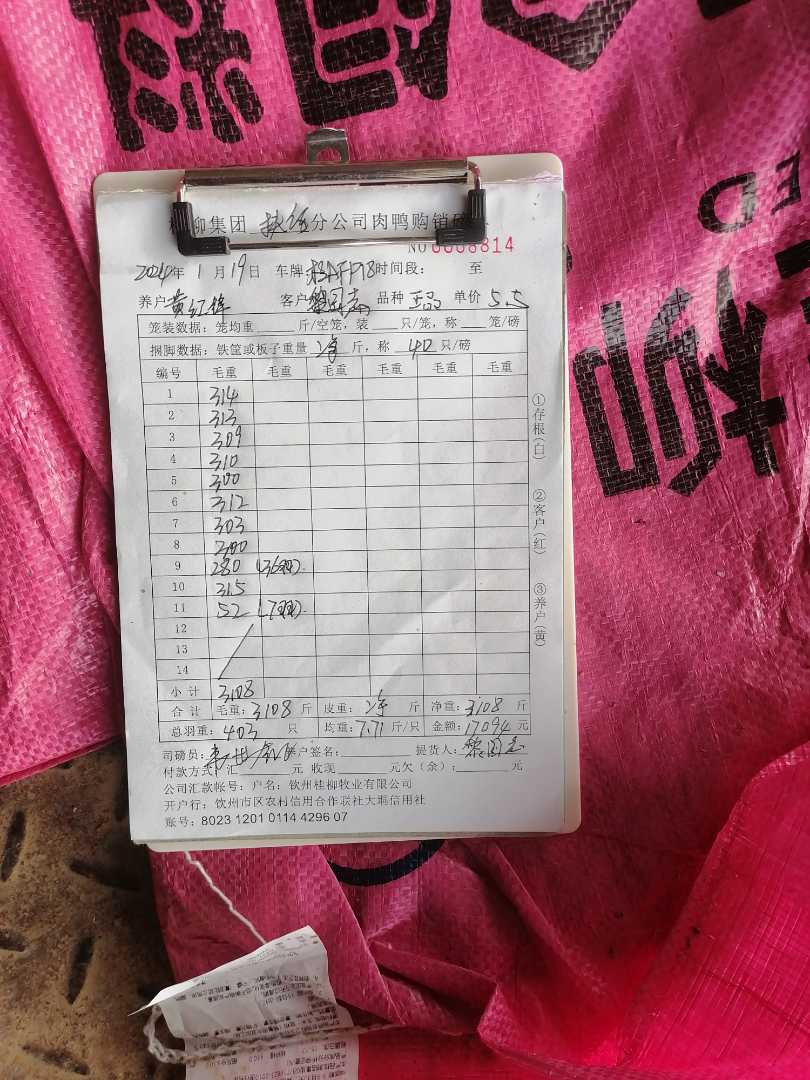 柳集团 钦州 分公司肉鸭购销磅
NO 0008814
2024年 1月19日 车牌 时间段: 至
养户 黄红梓 客户 品种 正品 单价 5.5
笼装数据:笼均重 斤/空笼,装 只/笼,称 笼/磅
捆脚数据:铁筐或板子重量 净 斤,称 40 只/磅
编号 毛重 毛重 毛重 毛重 毛重 毛重
1 314
2 313
3 309
4 310
5 300
6 312
7 303
8 300
9 280 (36只).
10 315
11 52 (7只).
12
13
14
小计 3108
合计 毛重:3108斤 皮重:净 斤 净重:3108斤
总羽重:403 只 均重:7.71斤/只 金额:17094元
司磅员: 养户签名: 提货人:黎国志
付款方式:汇 元 收现 元欠(余): 元
公司汇款帐号:户名:钦州桂柳牧业有限公司
开户行:钦州市区农村信用合作联社大垌信用社
账号:8023 1201 0114 4296 07
①存根(白)
②客户(红)
③养户(黄)
柳
ED